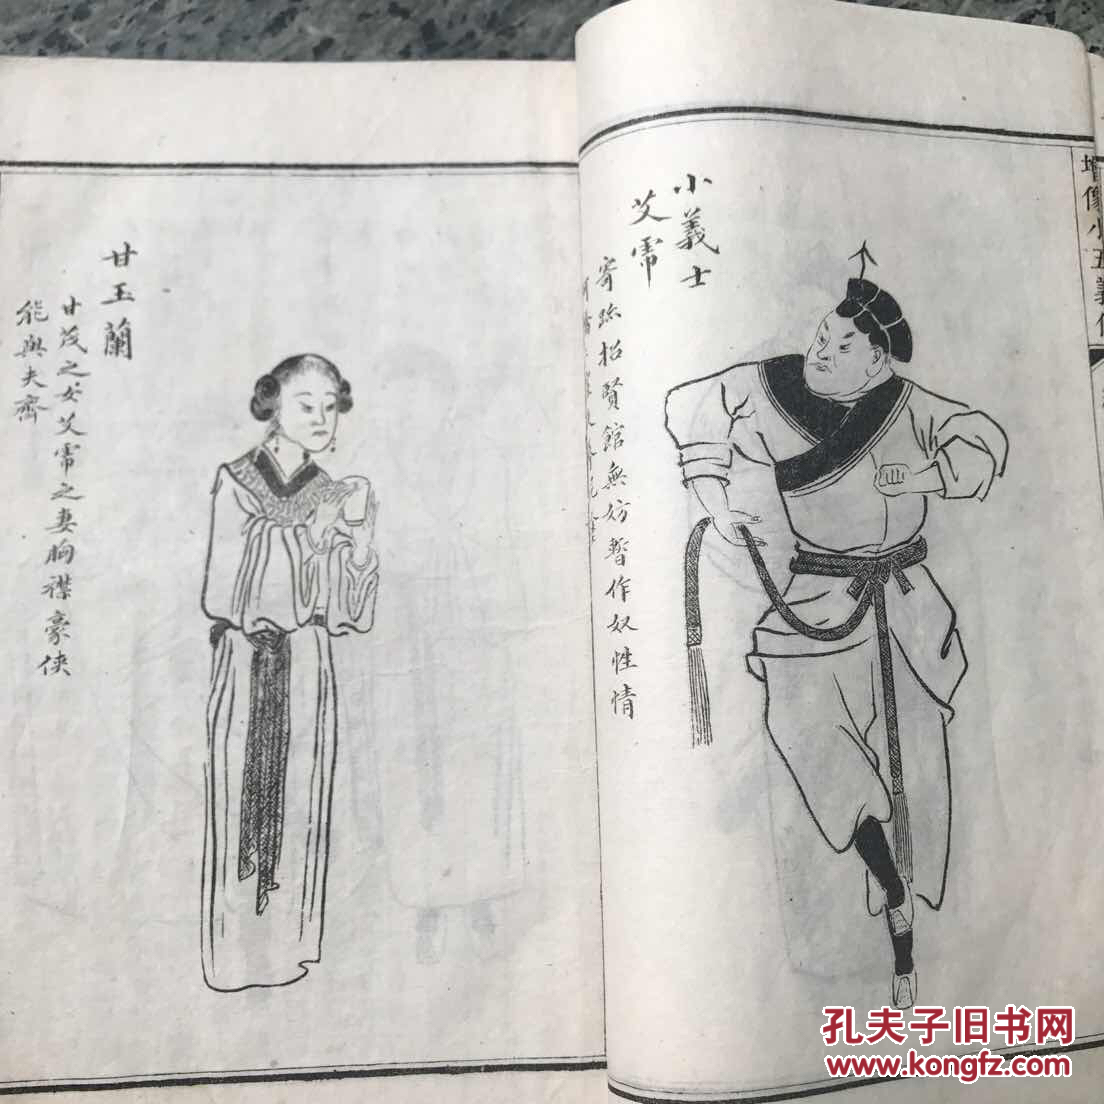 增像小五義
小義士
艾虎
寄跡招賢館無妨暫作奴性情
甘玉蘭
甘茂之女艾虎之妻胸襟豪俠
能與夫齊
孔夫子旧书网
www.kongfz.com